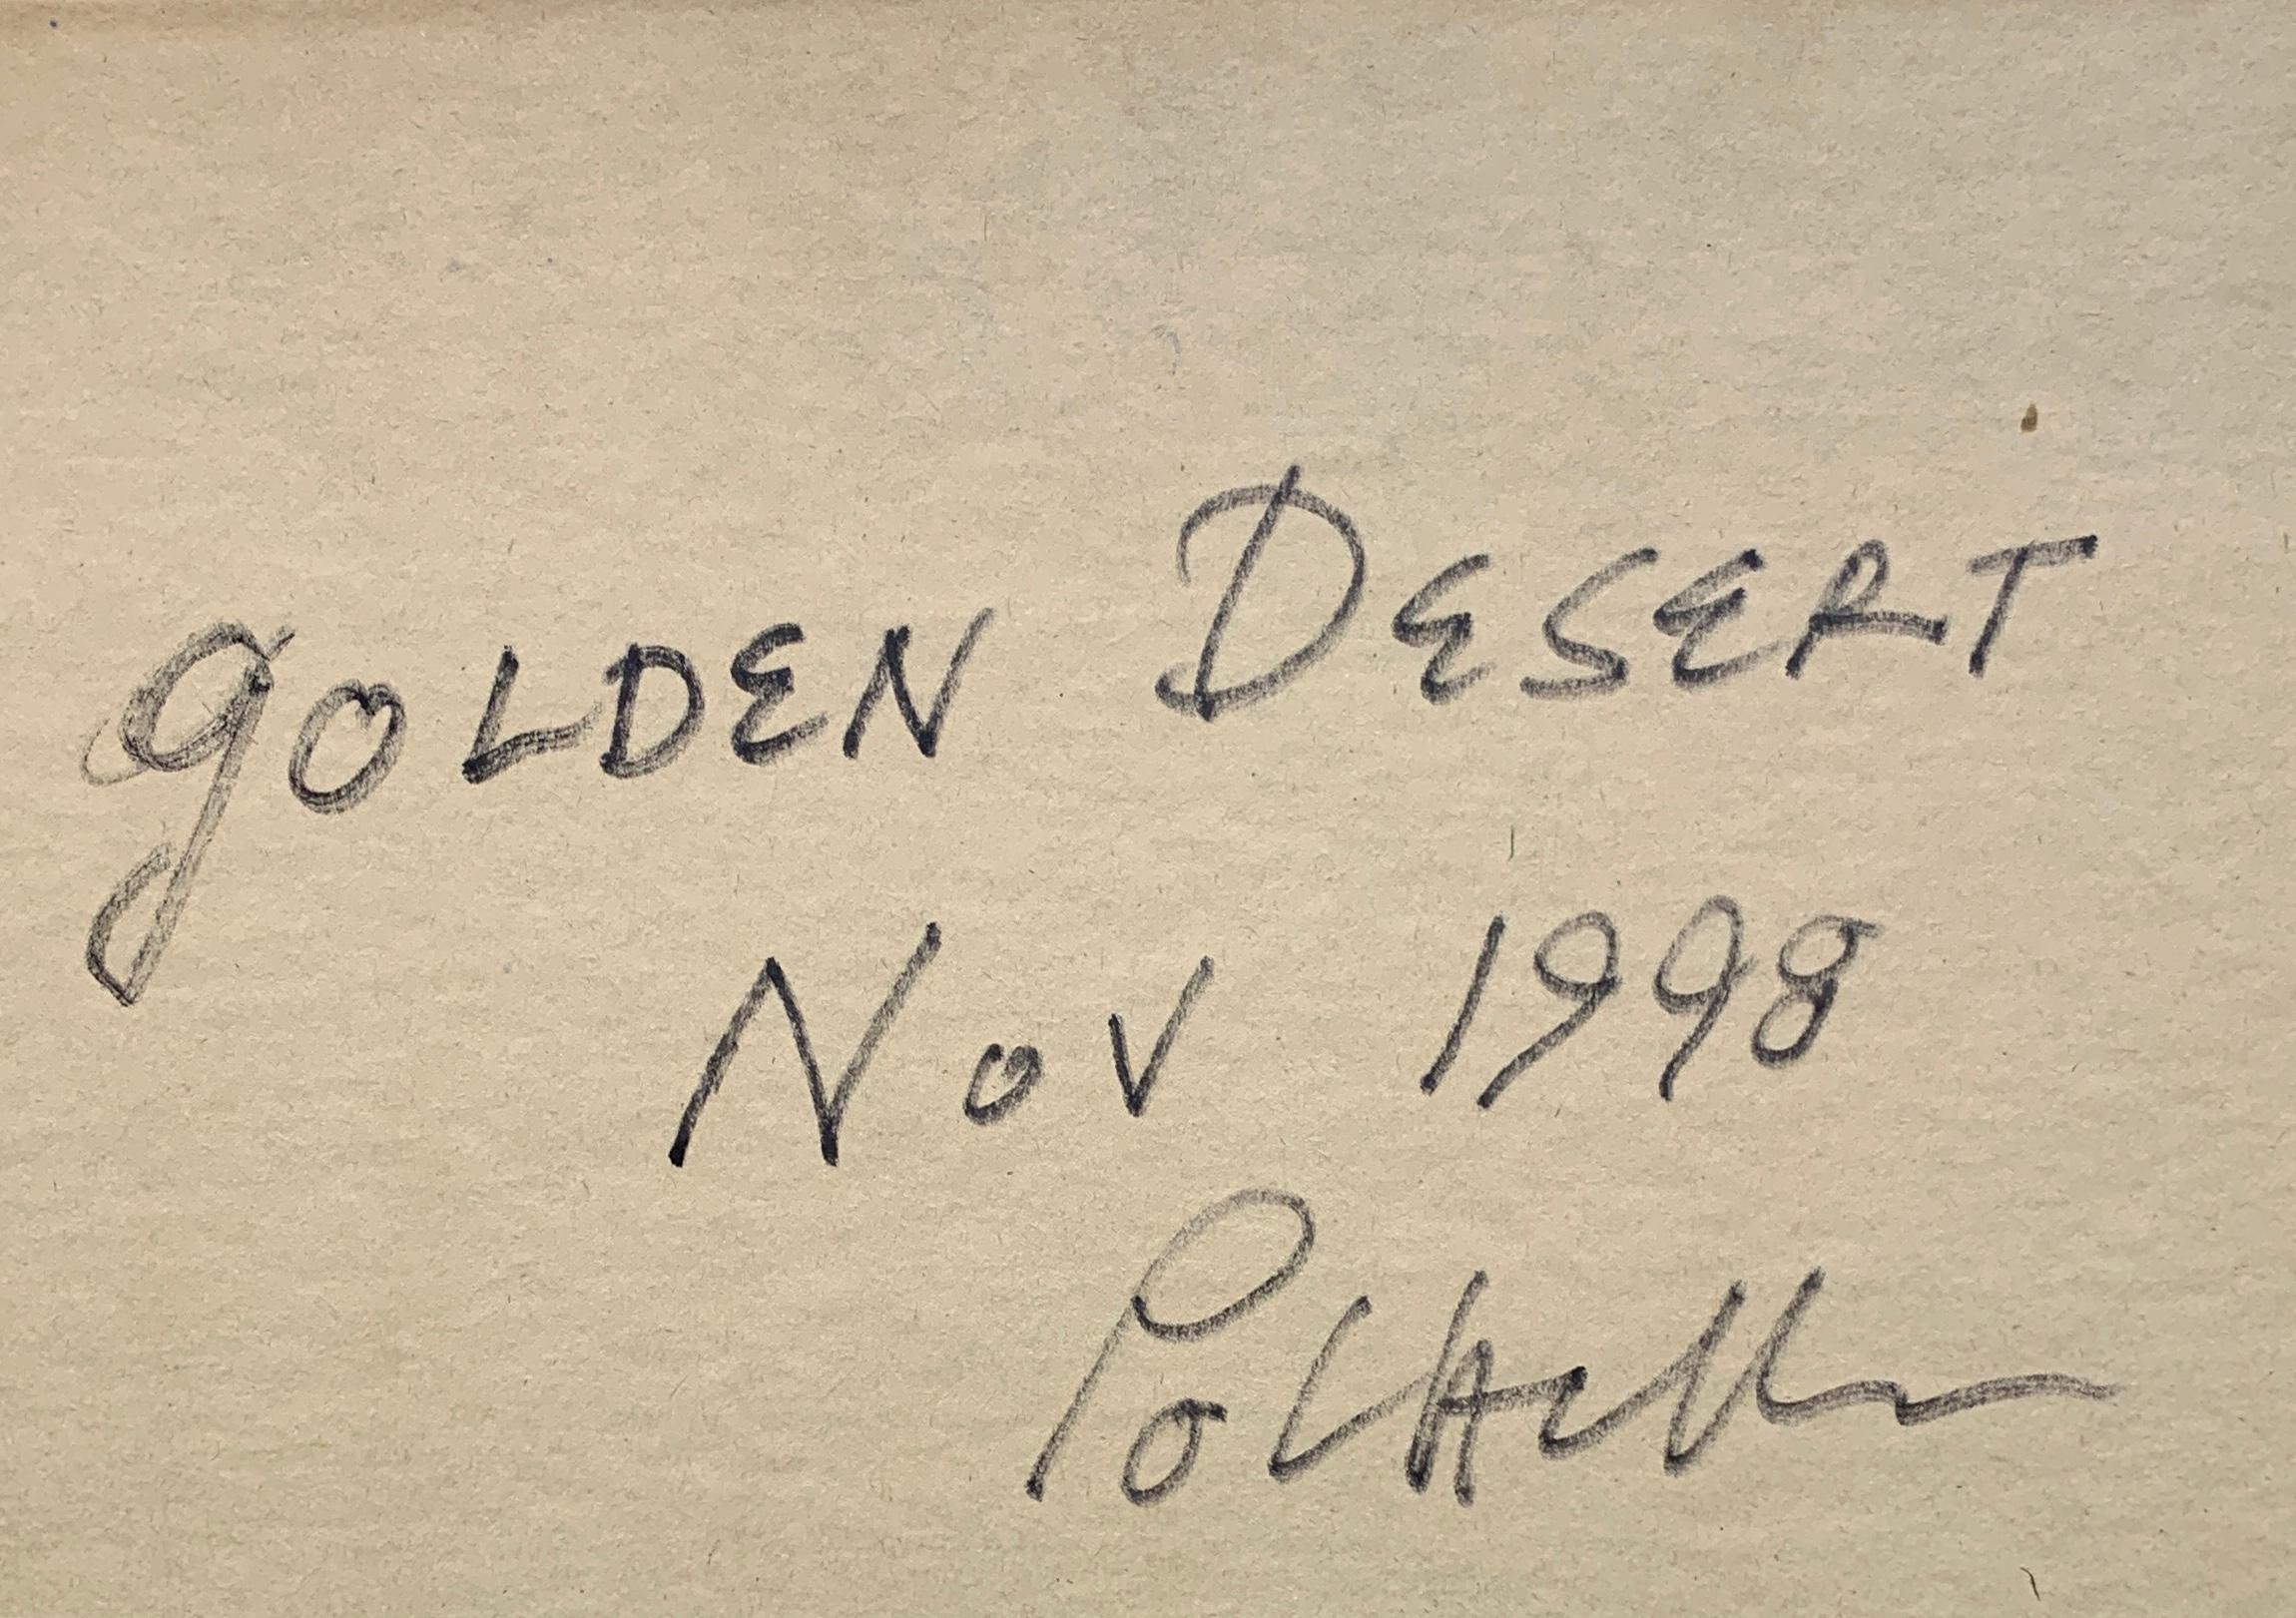 GOLDEN DESERT
Nov 1998